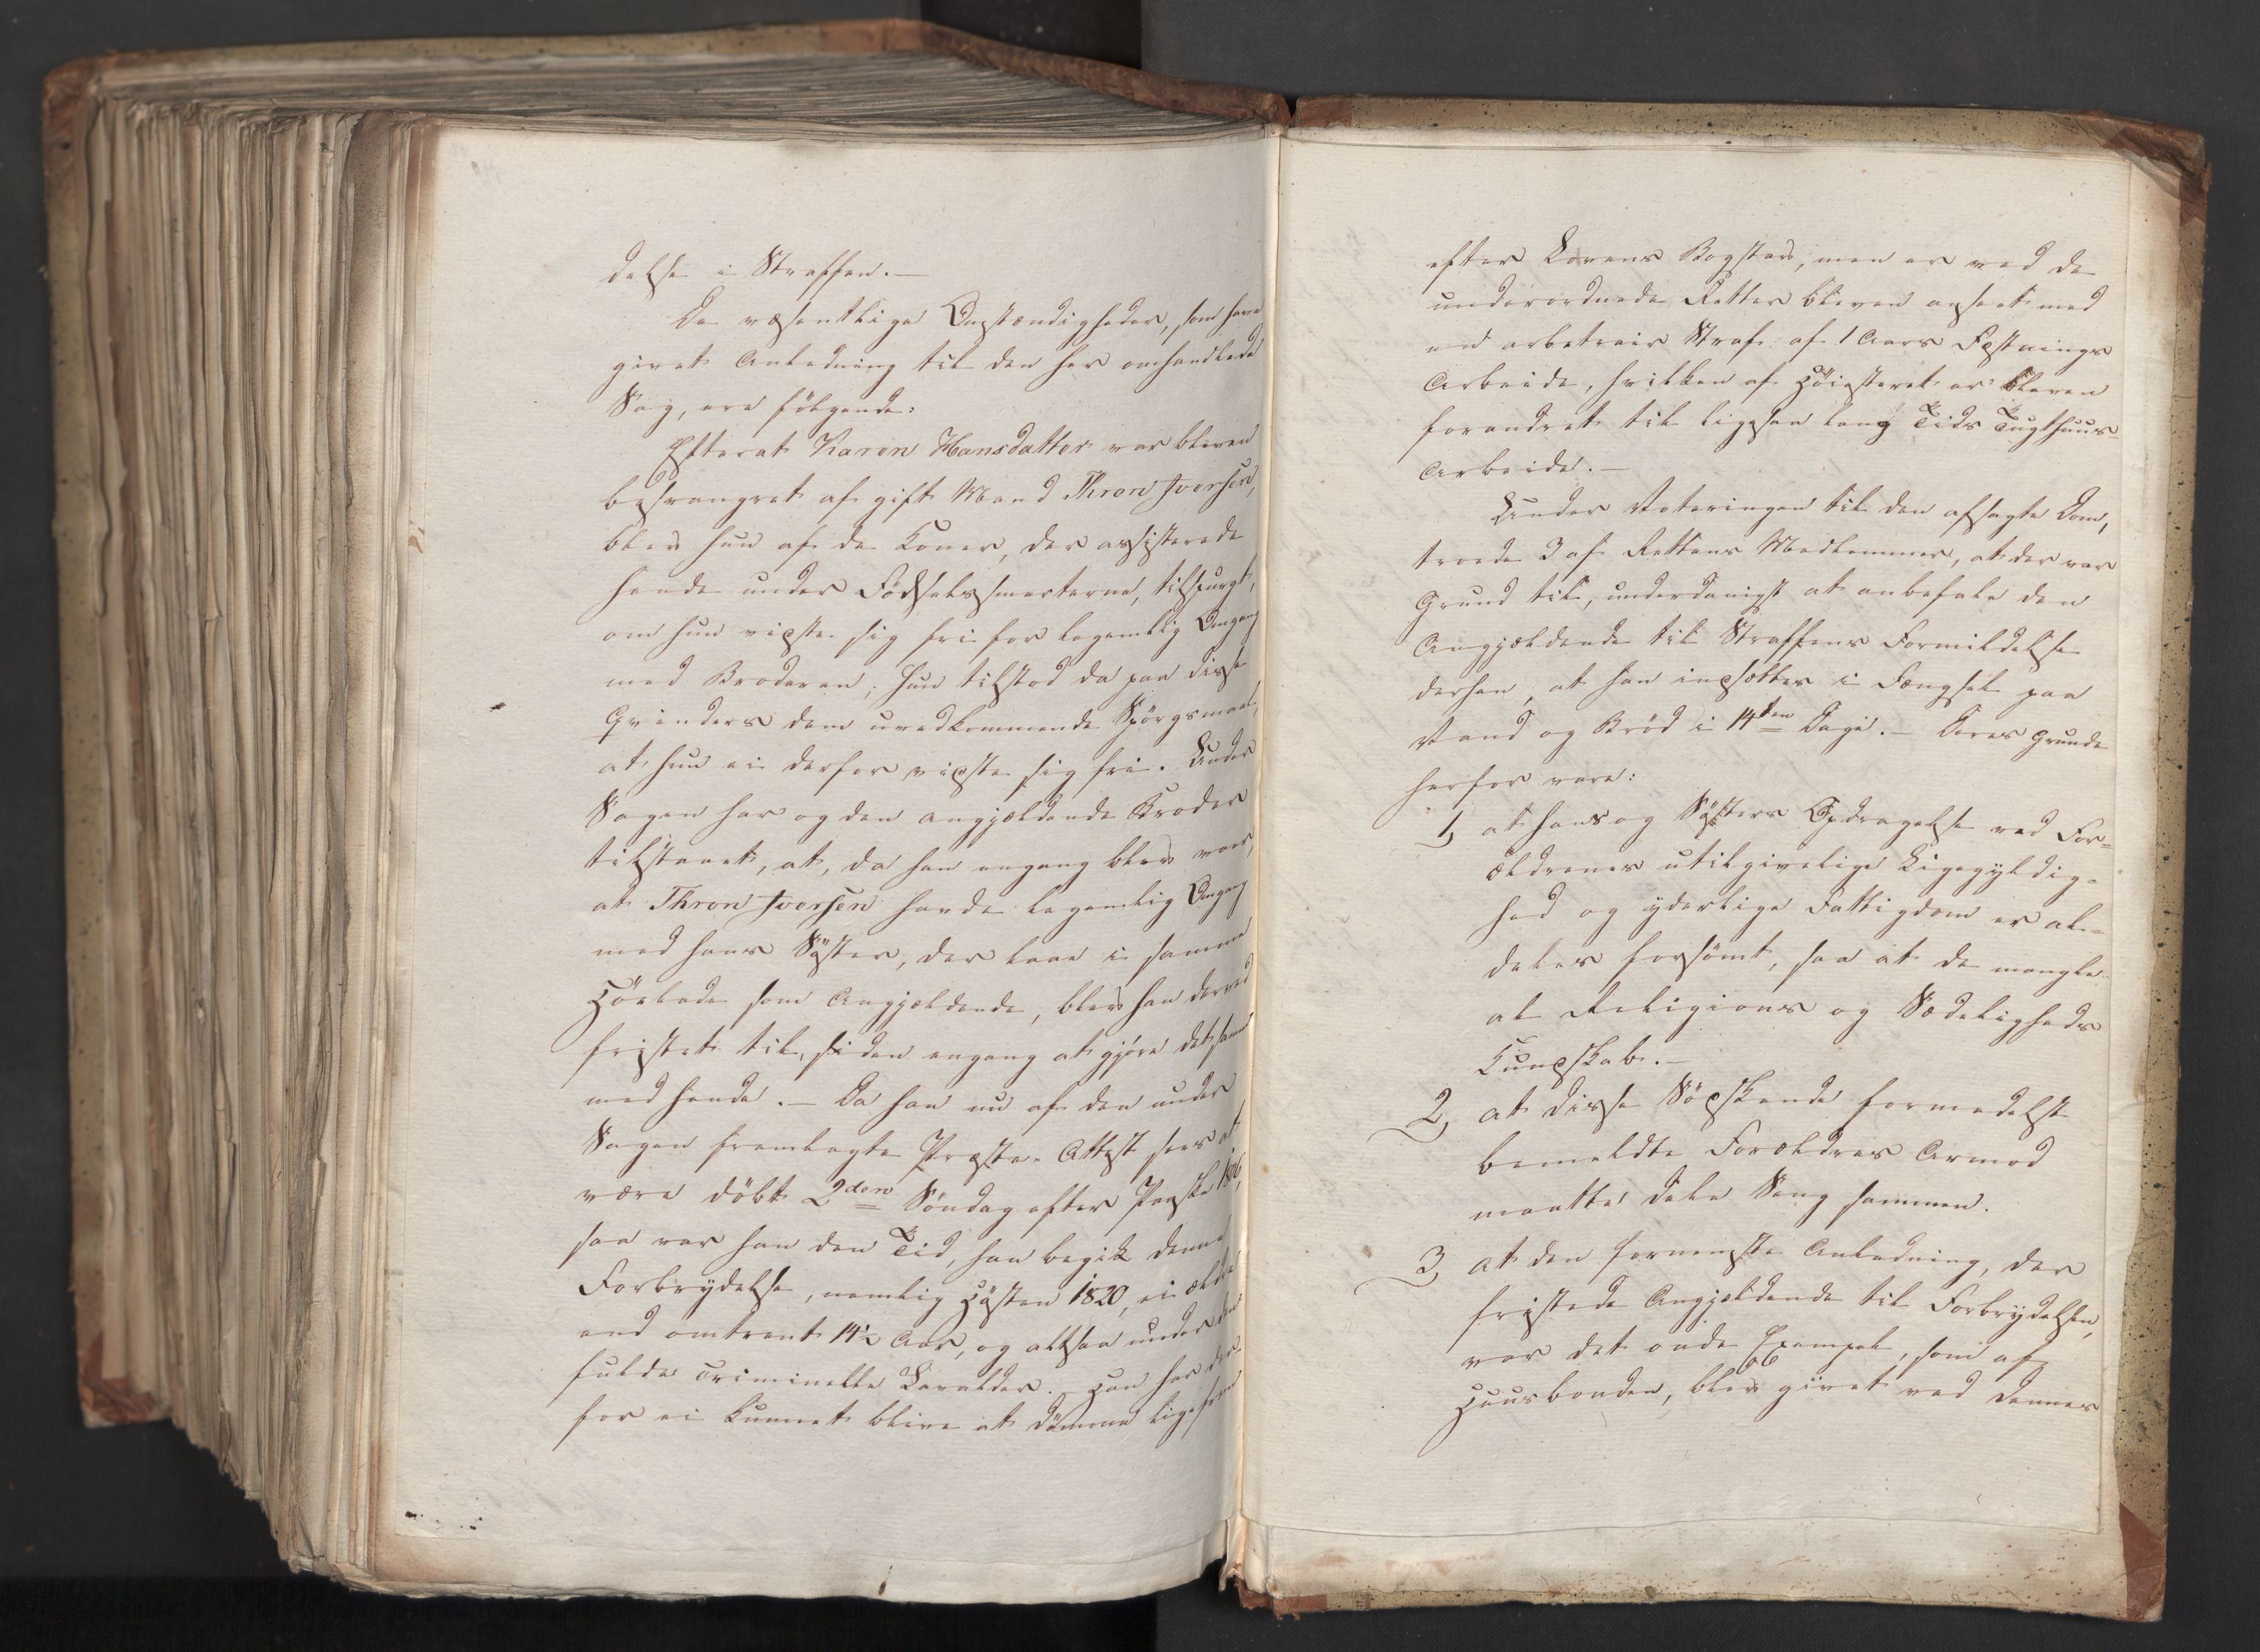 delse i Straffen.—
De væsentlige Omstændigheder, som have
givet Anledning til den her omhandlede
Sag, ere følgende:
Efterat Karen Hansdatter var bleven
besvangret af gift Mand Thron Iversen,
blev hun af de Koner, der assisterede
hende under Fødselssmerterne, tilspurgt,
om hun vidste sig fri for legemlig Omgang
med Broderen; hun tilstod da paa disse
Qvinders dem uvedkommende Spörgsmaal,
at hun ei derfor vidste sig fri. Under
Sagen har og den angjældende Broder
tilstaaet, at, da han engang blev vaer,
at Thron Iversen havde legemlig Omgang
med hans Søster, der laae i samme
Høelade som Angjældende, blev han derved
fristet til, siden engang at gjøre det samme
med hende.— Da han nu af den under
Sagen fremlagte Præste-Attest sees at
være döbt 2den Søndag efter Paaske 1806,
saa var han den Tid, han begik denne
Forbrydelse, nemlig Høsten 1820, ei ældre
end omtrent 14½ Aar, og altsaa under den
fulde criminelle Lavalder. Han har der-
for ei kunnet blive at dømme ligefrem
efter Lovens Bogstav, men er ved de
underordnede Retter bleven anseet med
en arbitrair Straf af 1 Aars Fæstnings
Arbeide, hvilken af Höiesteret er bleven
forandret til ligesaa lang Tids Tugthuus-
Arbeide.—
Under Voteringen til den afsagte Dom,
troede 3 af Rettens Medlemmer, at der var
Grund til, underdanigst at anbefale den
Angjældende til Straffens Formildelse
derhen, at han indsættes i Fængsel paa
Vand og Bröd i 14ten Dage.— Deres Grunde
herfor vare:
1, at hans og Søsters Opdragelse ved For=
ældrenes utilgivelige Ligegyldig-
hed og yderlige Fattigdom er al-
deles forsömt, saa at de mangle
al Religions og Sædeligheds
Kundskab.—
2, at disse Södskende formedelst
bemeldte Forældres Armod
maatte dele Seng sammen.
3, at den fornemste Anledning, der
fristede Angjældende til Forbrydelsen,
var det onde Exempel, som af
Huusbonden, blev givet ved dennes